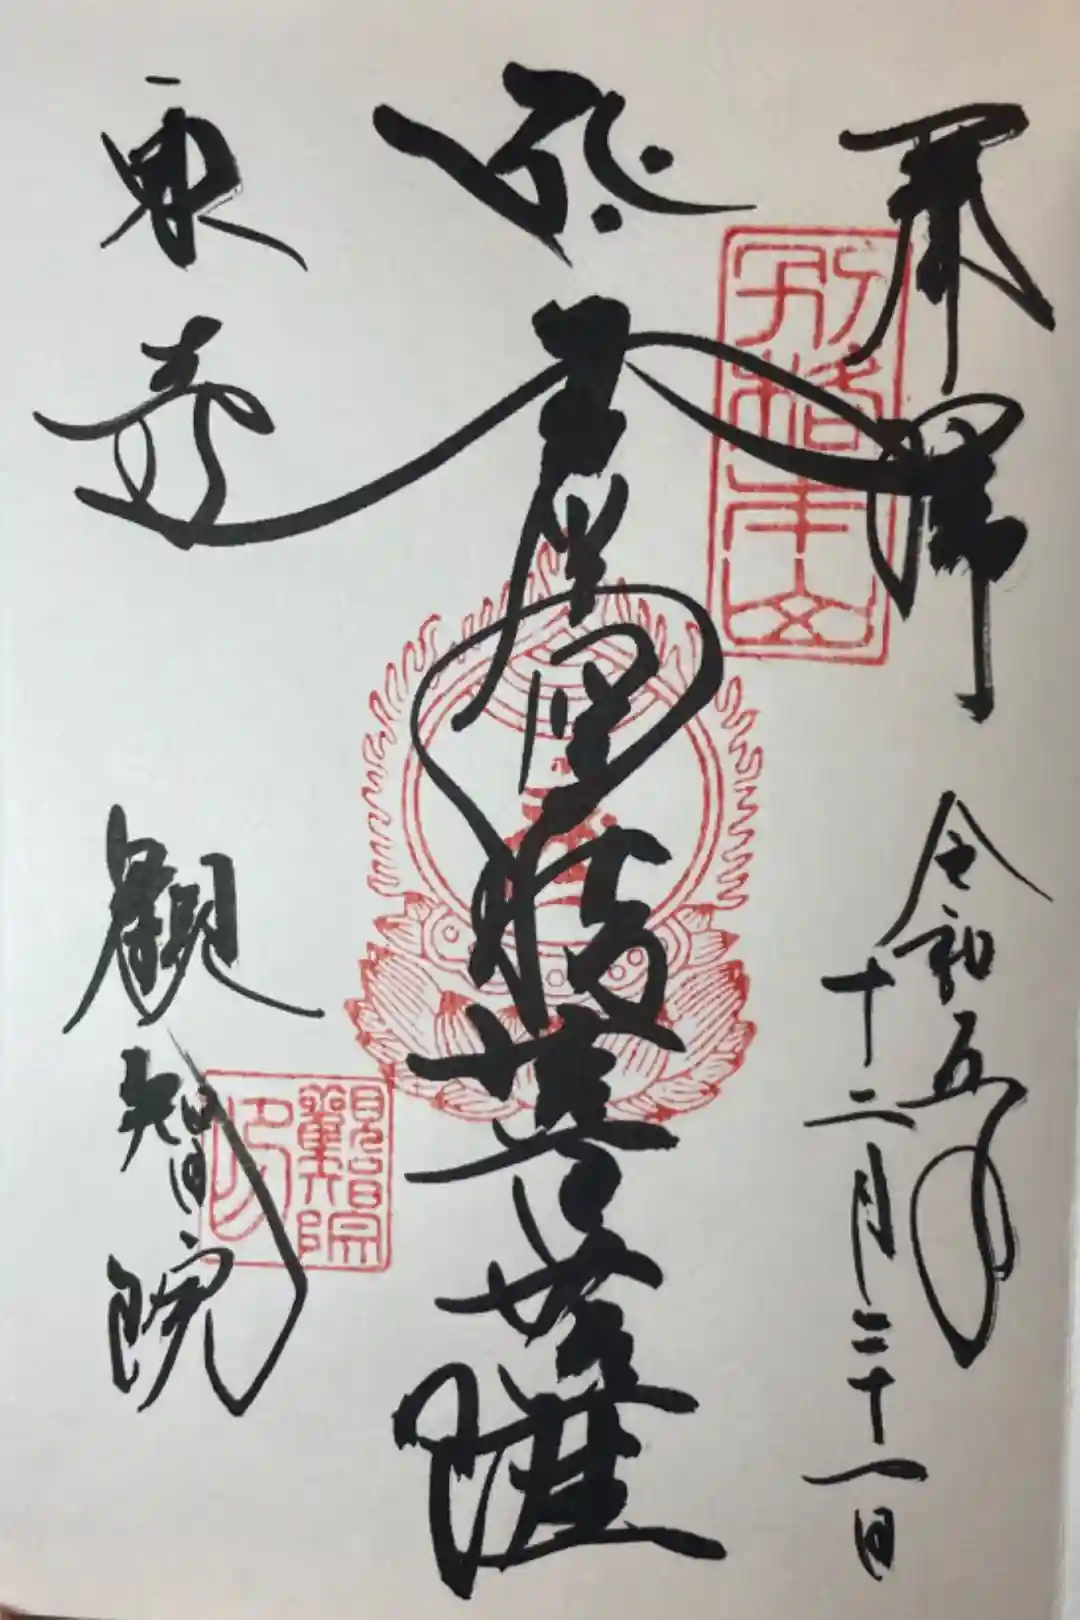 奉拝
令和五年
十二月三十一日
別格本山
五大虚空蔵菩薩
東寺
觀智院
觀智院印